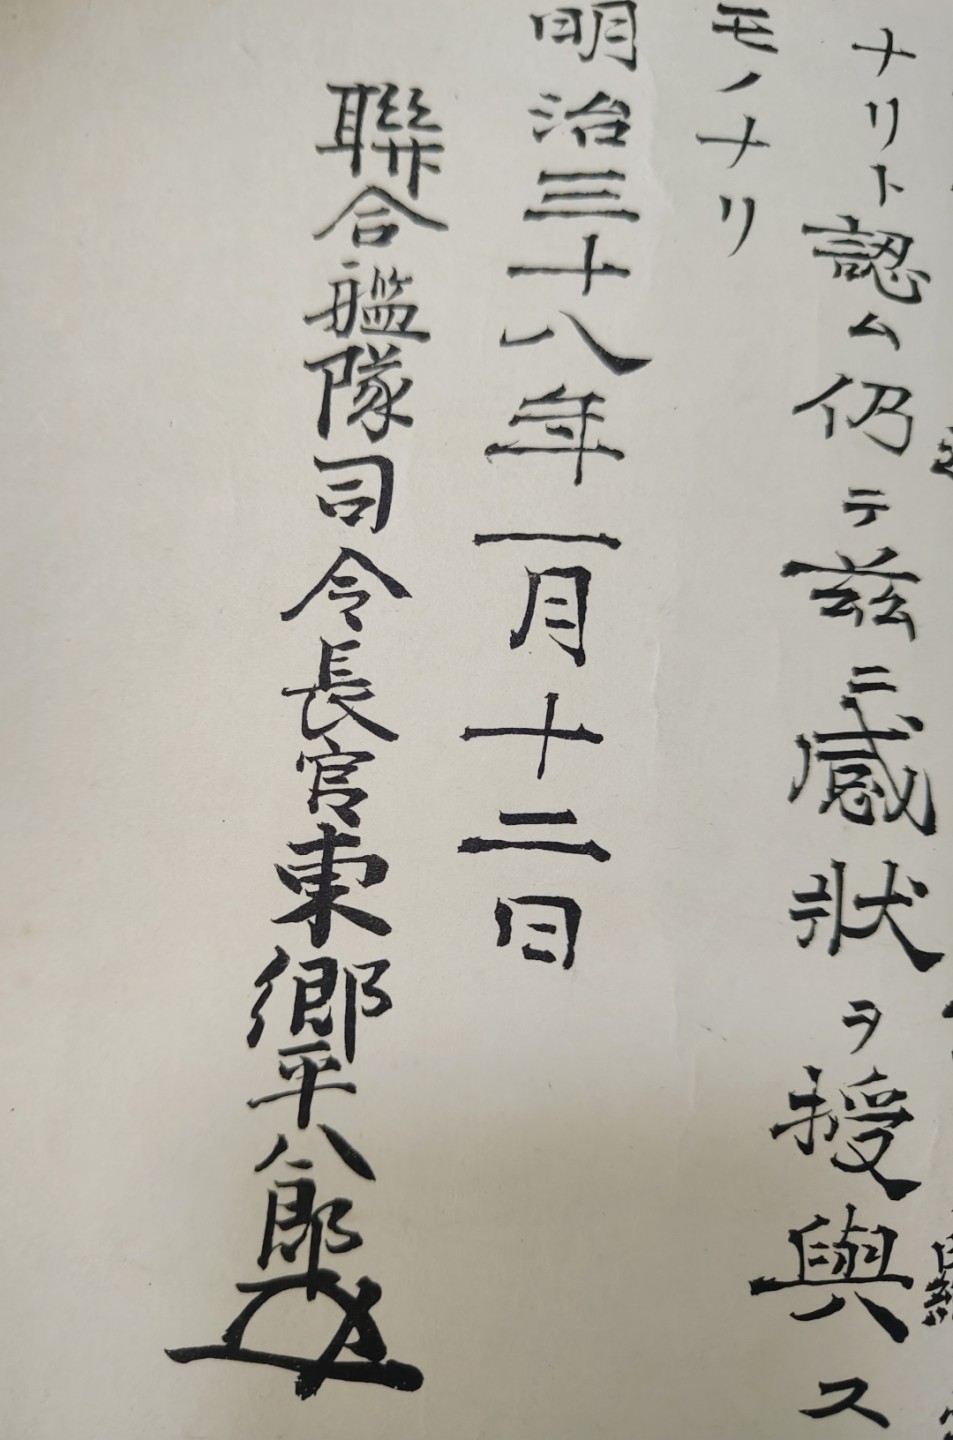 ナリト認ム仍テ茲ニ感状ヲ授與ス
モノナリ
明治三十八年一月十二日
聯合艦隊司令長官東郷平八郎